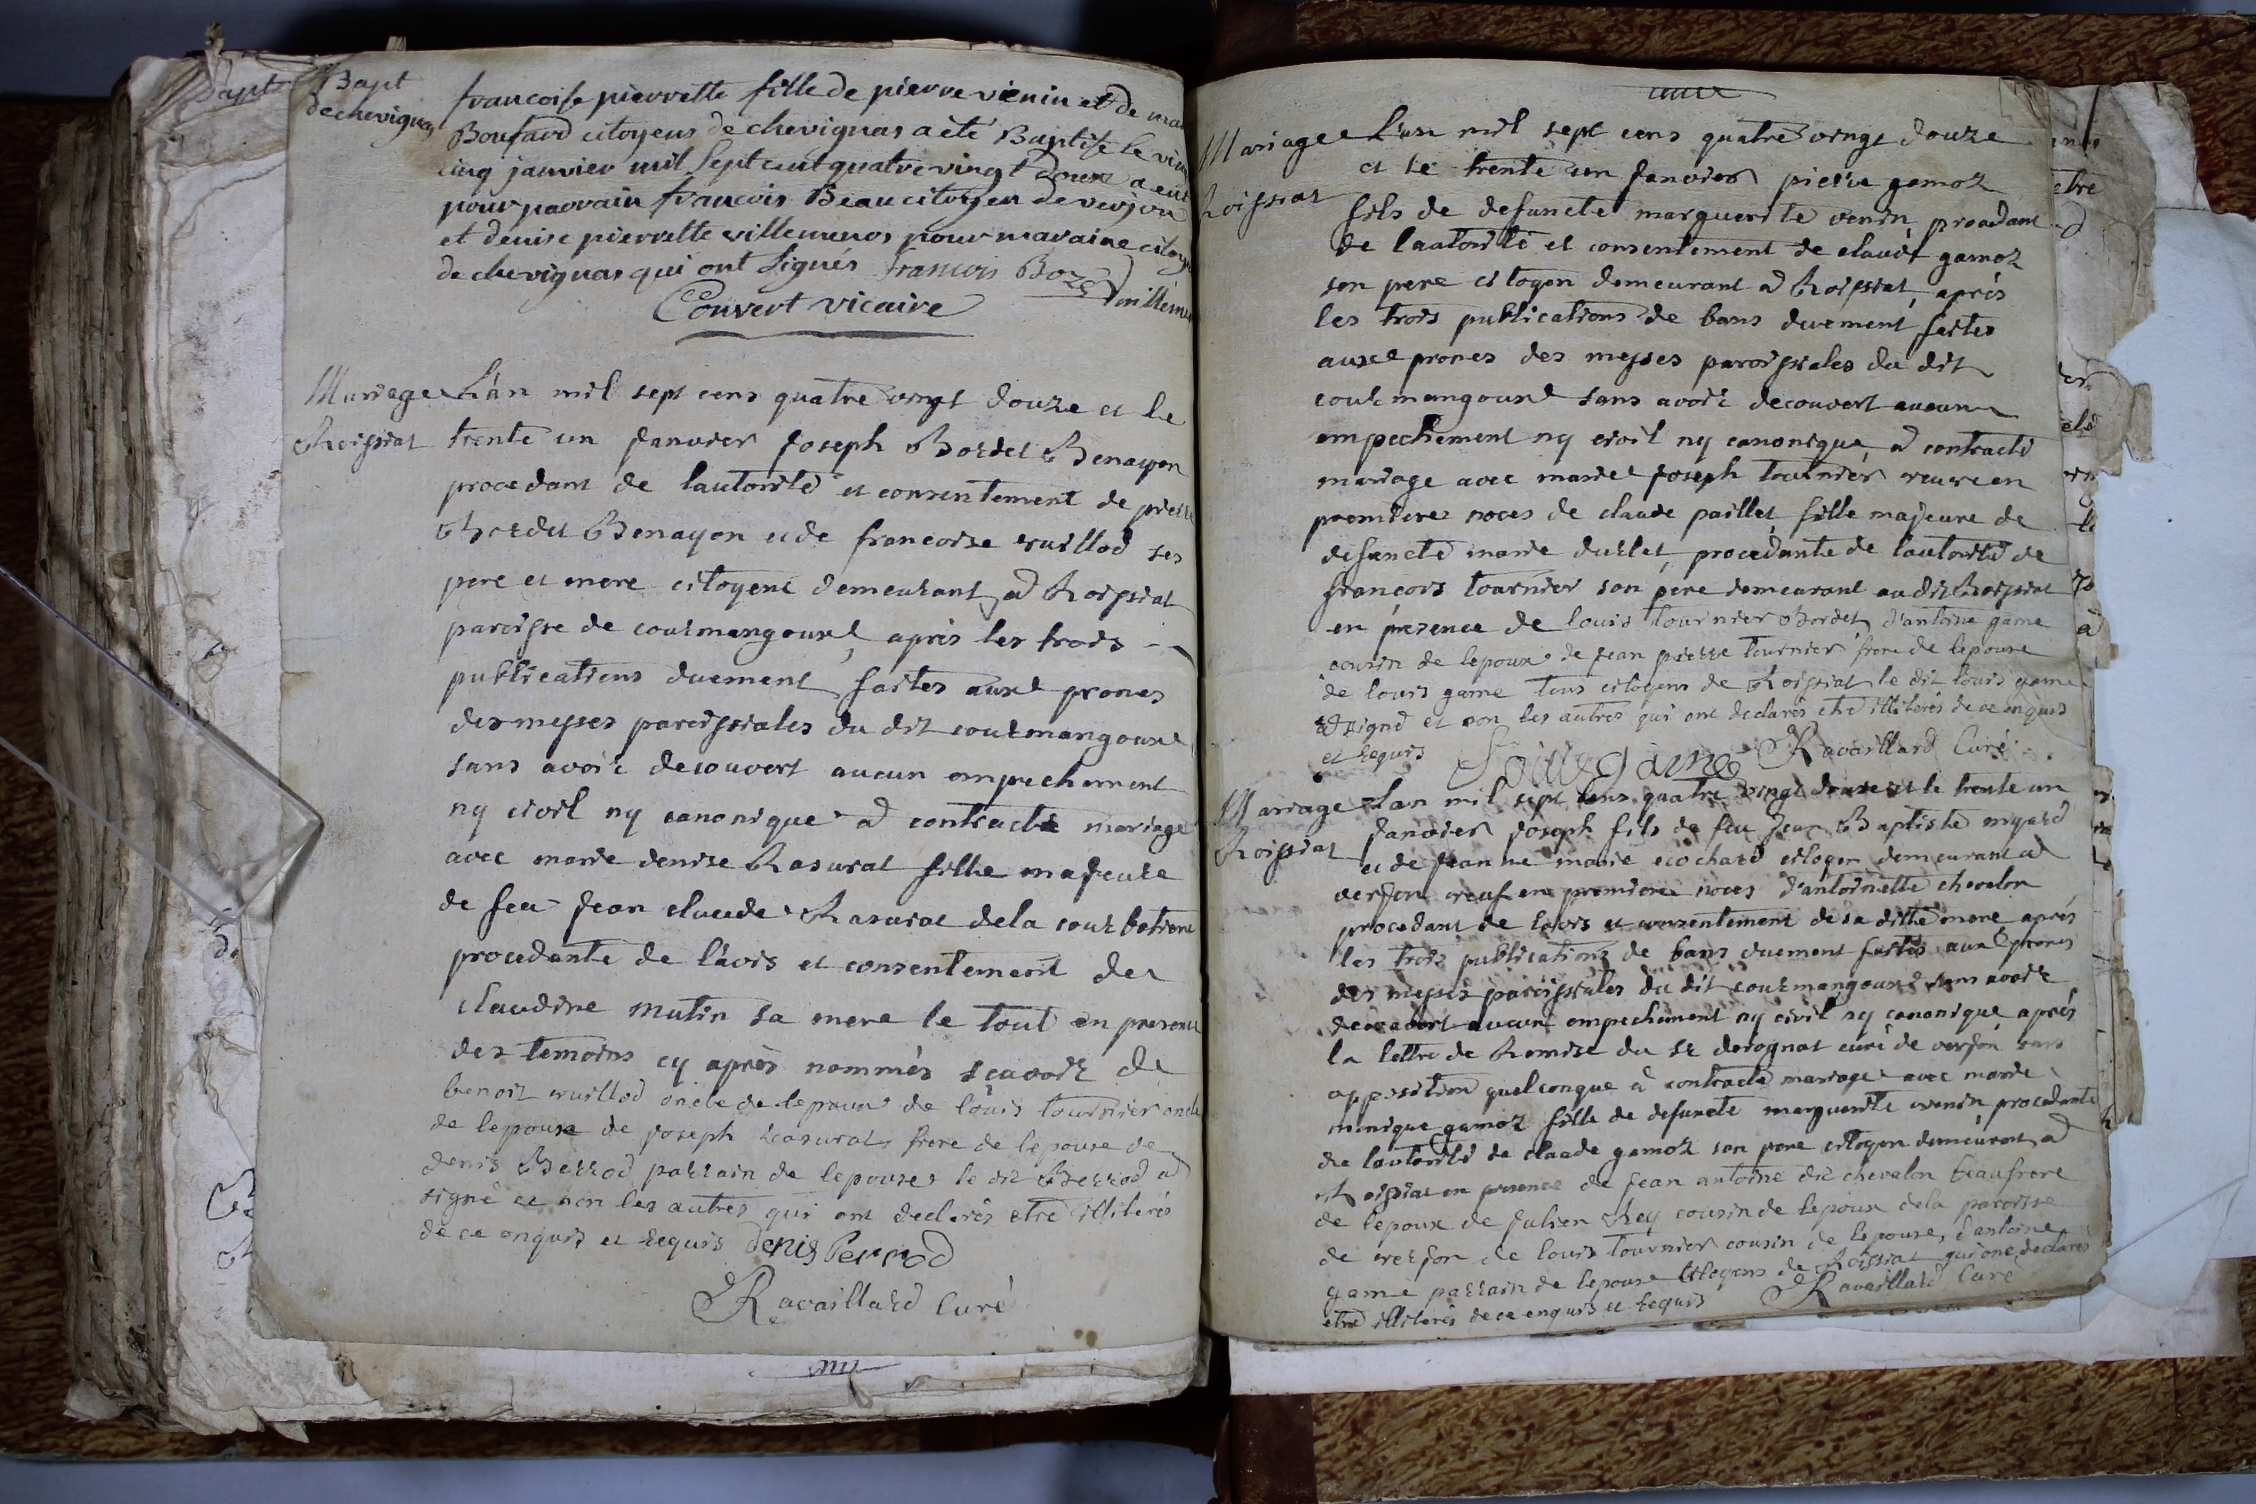 Bapt
de chevignas
francoise pierrette fille de pierre vienin et de
Boufard citoyens de chevignas a été Baptisé le
cinq janvier mil sept cent quatre vingt douze a eut
pour parrain francois Beau citoyen de verjon
et denise pierrette villemenos pour maraine
de chevignas qui ont signés francois Boze
Convert vicaire
Mariage L'an mil sept cens quatre vingt douze et le
Roissiat trente un janvier joseph Bordet Benayon
procedant de l'autorité et consentement de
Bordet Benayon et de francoise vuillod ses
pere et mere citoyens demeurant a Roissiat
paroisse de courmangoux, après les trois
publications duement faites aux prones
des messes paroissiales du dit courmangoux
sans avoir decouvert aucun empechement
ny civil ny canonique a contracté mariage
avec marie denise Rasurat fille majeure
de feu jean claude Rasurat de la
procedante de l'avis et consentement de
claudine mutin sa mere le tout en presence
des temoins cy après nommés scavoir de
benoit vuillod oncle de lepoux de louis tournier oncle
de lepouse de joseph rasurat frere de lepouse de
denis Berrod parrain de lepouse le dit Berrod a
signé et non les autres qui ont declarés etre illiterés
de ce enquis et requis Denis Perrod
Ravaillard Curé
Mariage L'an mil sept cens quatre vingt douze
Roissiat et le trente un janvier pierre gamoz
fils de defuncte marguerite venin procedant
de lautorité et consentement de claude gamoz
son pere citoyen demeurant a Roissiat, après
les trois publications de bans duement faites
aux prones des messes paroissiales du dit
courmangoux sans avoir decouvert aucun
empechement ny civil ny canonique a contracté
mariage avec marie joseph tournier veuve en
premieres noces de claude paillet fille majeure de
defuncte marie durlet, procedante de l'autorité de
françois tournier son pere demeurant au dit Roissiat
en presence de louis tournier Bordet d'antoine game
cousin de lepoux de jean pierre tournier frere de lepouse
de louis game tous citoyens de Roissiat le dit louis game
a signé et non les autres qui ont declarés etre illiterés de ce enquis
et requis Louis game Ravaillard Curé
Mariage L'an mil sept cens quatre vingt douze et le trente un
Roissiat janvier joseph fils de feu jean Baptiste myard
et de jeanne marie ecochard citoyen demeurant a
verjon veuf en premiere noces d'antoinette chevelon
procedant de lavis et consentement de sa ditte mere, après
les trois publications de bans duement faites aux prones
des messes paroissiales du dit courmangoux sans avoir
decouvert aucun empechement ny civil ny canonique après
la lettre de Remise du sr derognat curé de verjon sans
opposition quelconque a contracté mariage avec marie
minique gamoz fille de defuncte marguerite venin procedante
de lautorité de claude gamoz son pere citoyen demeurant a
Roissiat en presence de jean antoine dit chevelon beaufrere
de lepoux de julien Rey cousin de lepoux de la paroisse
de verjon de louis tournier cousin de lepouse, d'antoine
game parrain de lepouse citoyens de Roissiat qui ont declarés
etre illiterés de ce enquis et requis Ravaillard Curé